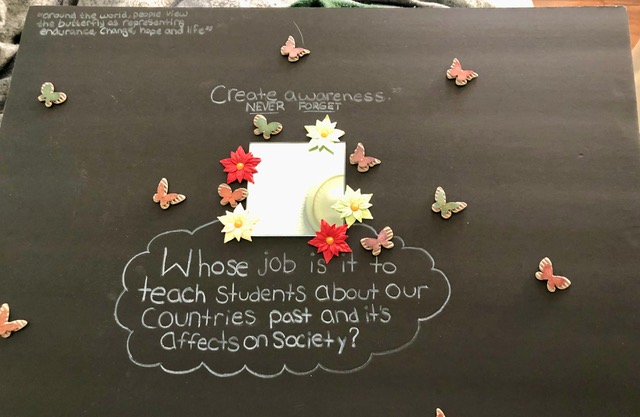 "around the world, people view
the butterfly as representing
endurance, change, hope and life"
Create awareness."
NEVER FORGET
Whose job is it to
teach students about our
Countries past and it's
affects on society?